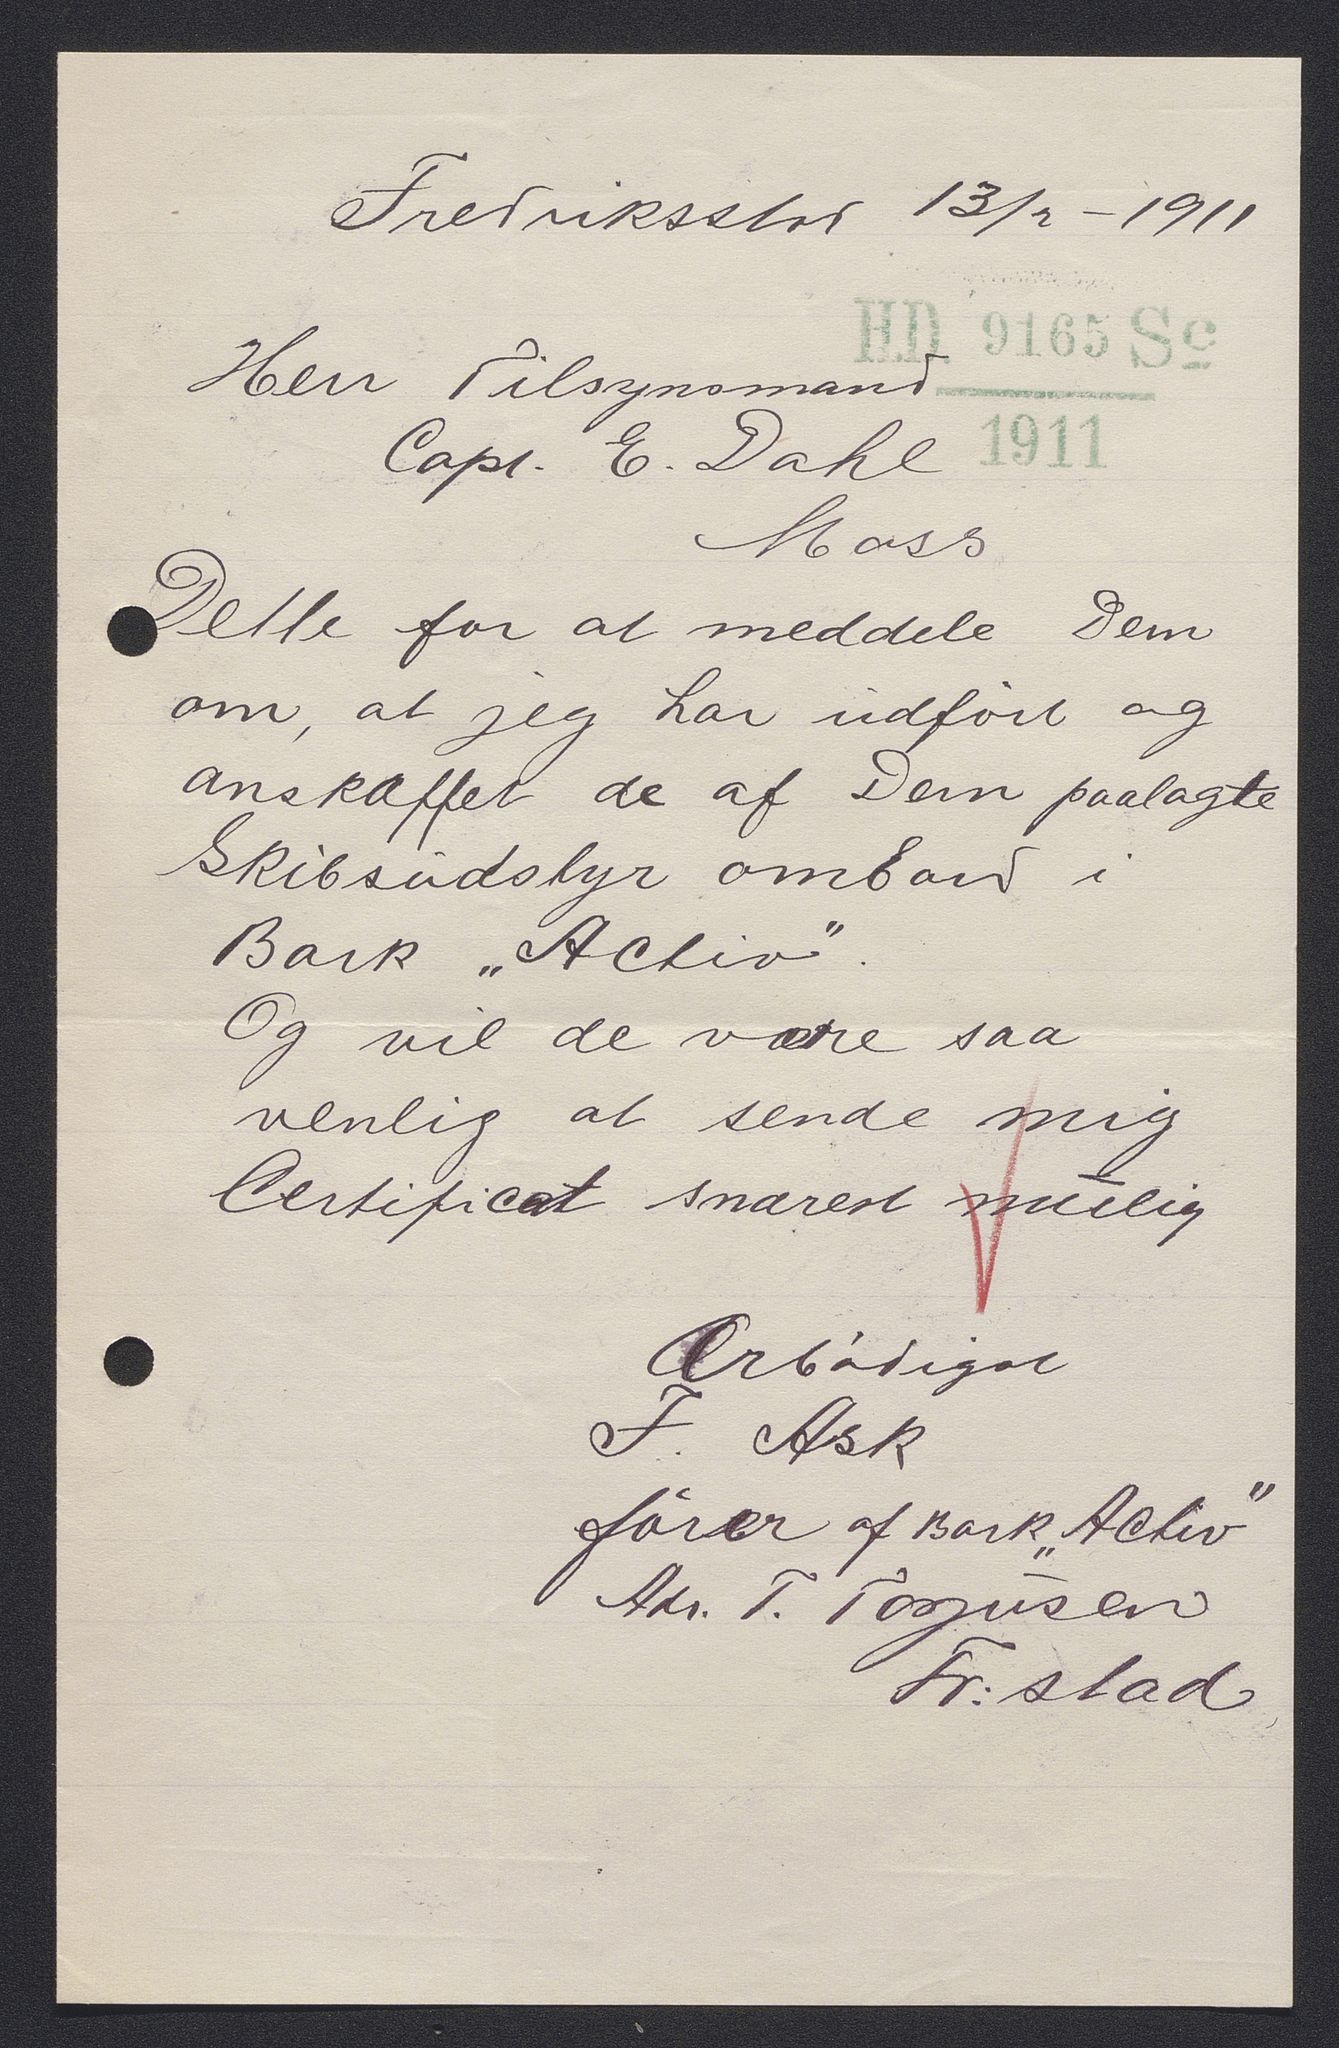 Fredriksstad 13/2 – 1911
H.D. 9165 Sc
1911
Herr Tilsynsmand
Capt. E. Dahl
Moss
Dette for at meddele Dem
om, at jeg har udført og
anskaffet de af Dem paalagte
Skibsudstyr ombord i
Bark „Activ".
Og vil de være saa
venlig at sende mig
Certificat snarest mulig
Ærbødigst
F. Ask
fører af Bark „Activ"
Adr. T. Torjusen
Fr: stad